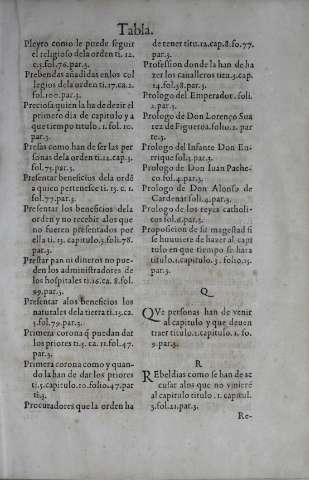 Tabla.
Pleyto como le puede seguir
el religioso dela orden ti. 12.
c.3.fol.76.par.3.
Prebendas añadidas enlos col
legios dela orden ti.17.ca.2.
fol.100.par.3.
Preciosa quien la ha de dezir el
primero dia de capitulo y a
que tiempo titulo.1.fol.10.
par.3.
Presas como han de ser las per
sonas dela orden ti.12.cap.3.
fol.75.par.3.
Presentar beneficios dela ordē
a quien pertenesce ti.13.c.1.
fol.77.par.3.
Presentar los beneficios dela
orden y no recebir alos que
no fueren presentados por
ella ti.13.capitulo.3.foli.78.
par.3.
Prestar pan ni dineros no pue-
den los administradores de
los hospitales ti.16.ca.8.fol.
99.par.3.
Presentar alos beneficios los
naturales dela tierra ti.13.ca.
3.fol.79.par.3.
Primera corona q̃ puedan dat
los priores ti.5.ca.11.fol.47.
par.3.
Primera corona como y quan-
do la han de dar los priores
ti.5.capitulo.10.folio.47.par
ti.3.
Procuradores que la orden ha
de tener titu.12.cap.8.fo.77.
par.3.
Profession donde la han de ha
zer los caualleros titu.3.cap.
14.fol.38.par.3.
Prologo del Emperador.foli.
2.par.3.
Prologo de Don Lorenço Sua
rez de Figueroa.folio.2.par
te.3.
Prologo del Infante Don En-
rique fol.3.par.3.
Prologo de Don Iuan Pache-
co.fol.4.par.3.
Prologo de Don Alonso de
Cardenas foli.4.par.3.
Prologo de los reyes catholi-
cos fol.6.par.3.
Proposicion de su magestad si
se huuiere de hazer al capi
tulo en que tiempo se hara
titulo.1.capitulo.3.folio.15.
par.3.
Q
QVe personas han de venir
al capitulo y que deuen
traer titulo.1.capitulo.1.fo.
9.par.3.
R
REbeldias como se han de ac
cusar alos que no viniere
al capitulo titulo.1.capitul.
5.fol.21.par.3.
Re-